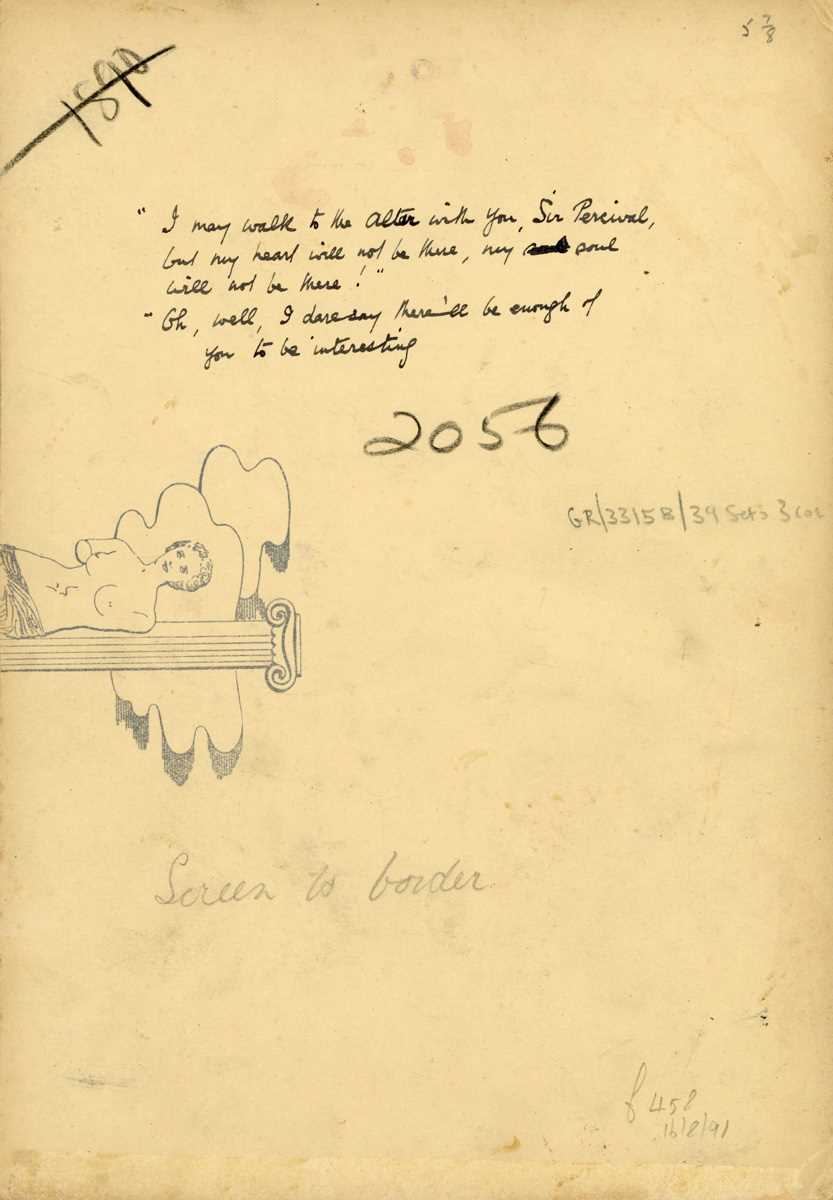 5 7/8
1890
" I may walk to the Alter with you, Sir Percival,
but my heart will not be there, my soul soul
will not be there! "
" Oh, well, I daresay there'll be enough of
you to be interesting
2056
GR/3315B/39 Sets 3 col
Screen to border
f 458
16/8/91